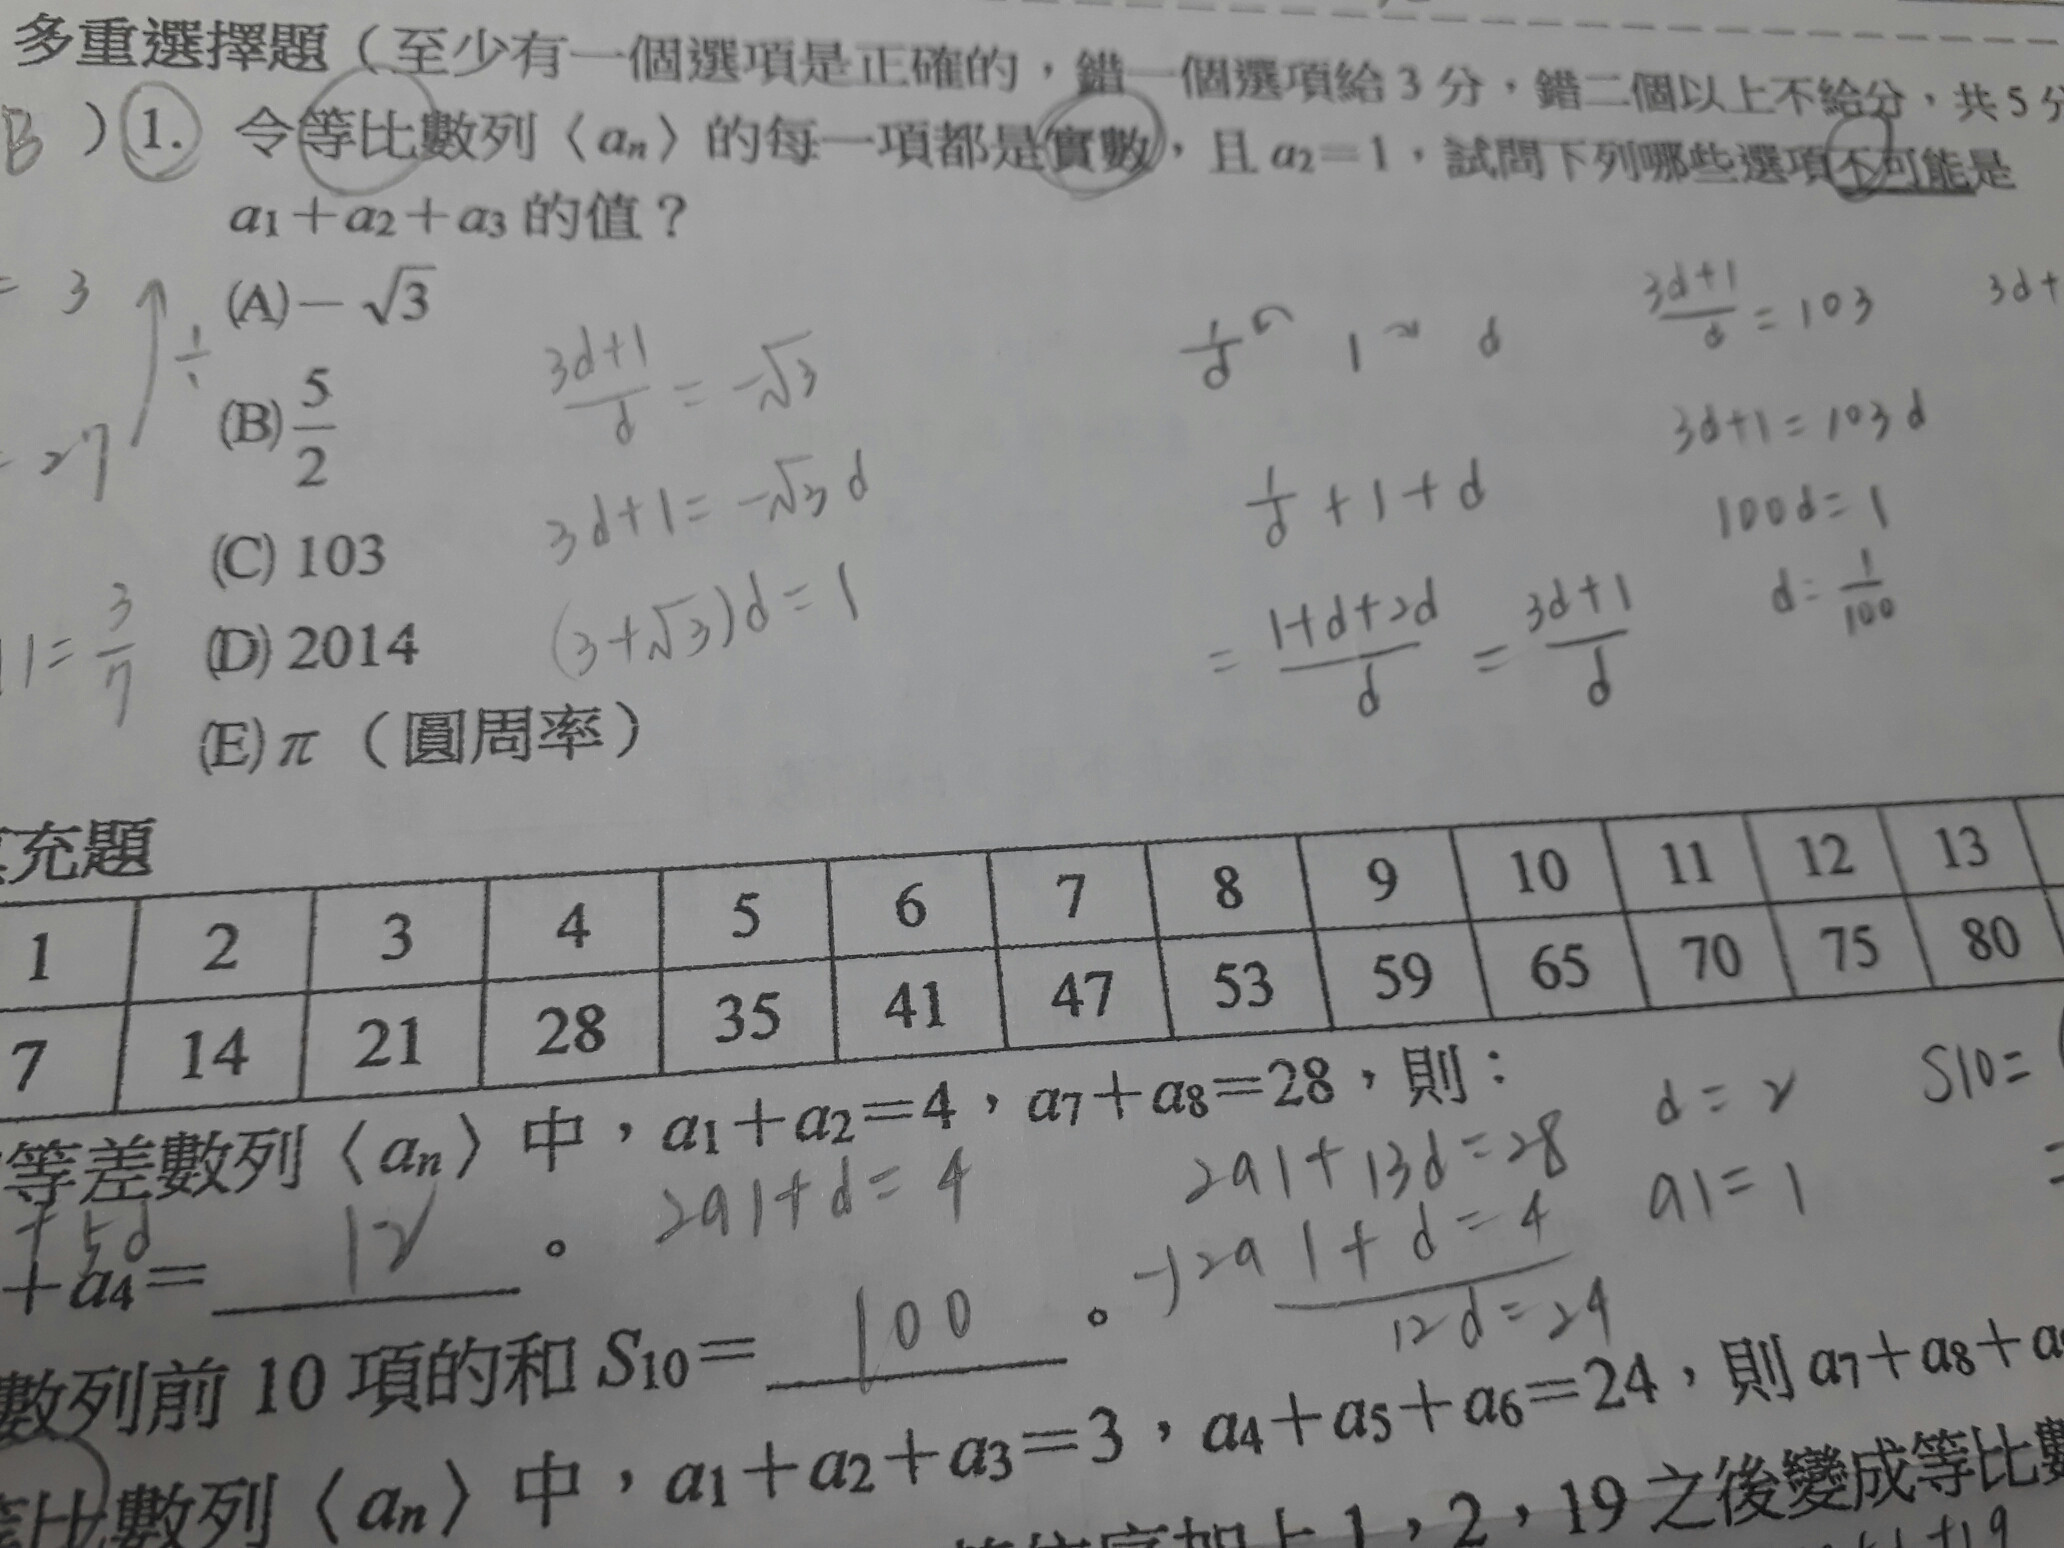 多重選擇題（至少有一個選項是正確的，錯一個選項給3分，錯二個以上不給分，共5分
B ) 1. 令等比數列〈an〉的每一項都是實數，且 a2=1，試問下列哪些選項不可能是
a1+a2+a3 的值？
= 3
÷
= 27
11= 3/7
(A)－√3
(B) 5/2
(C) 103
(D) 2014
(E) π（圓周率）
3d+1/d = -√3
3d+1= -√3 d
(3+√3)d = 1
1/d 1 d
1/d + 1 + d
= 1+d+2d/d = 3d+1/d
3d+1/d = 103
3d+1=103d
100d=1
d= 1/100
3d+
充題
1 2 3 4 5 6 7 8 9 10 11 12 13
7 14 21 28 35 41 47 53 59 65 70 75 80
等差數列〈an〉中，a1+a2=4，a7+a8=28，則：
+5d
+a4= 12 。
2a1+d=4
2a1+13d=28
-)2a1+d=4
12d=24
d=2
a1=1
S10=
=
數列前 10 項的和 S10= 100 。
等比數列〈an〉中，a1+a2+a3=3，a4+a5+a6=24，則 a7+a8+a
加上 1，2，19 之後變成等比數
+19